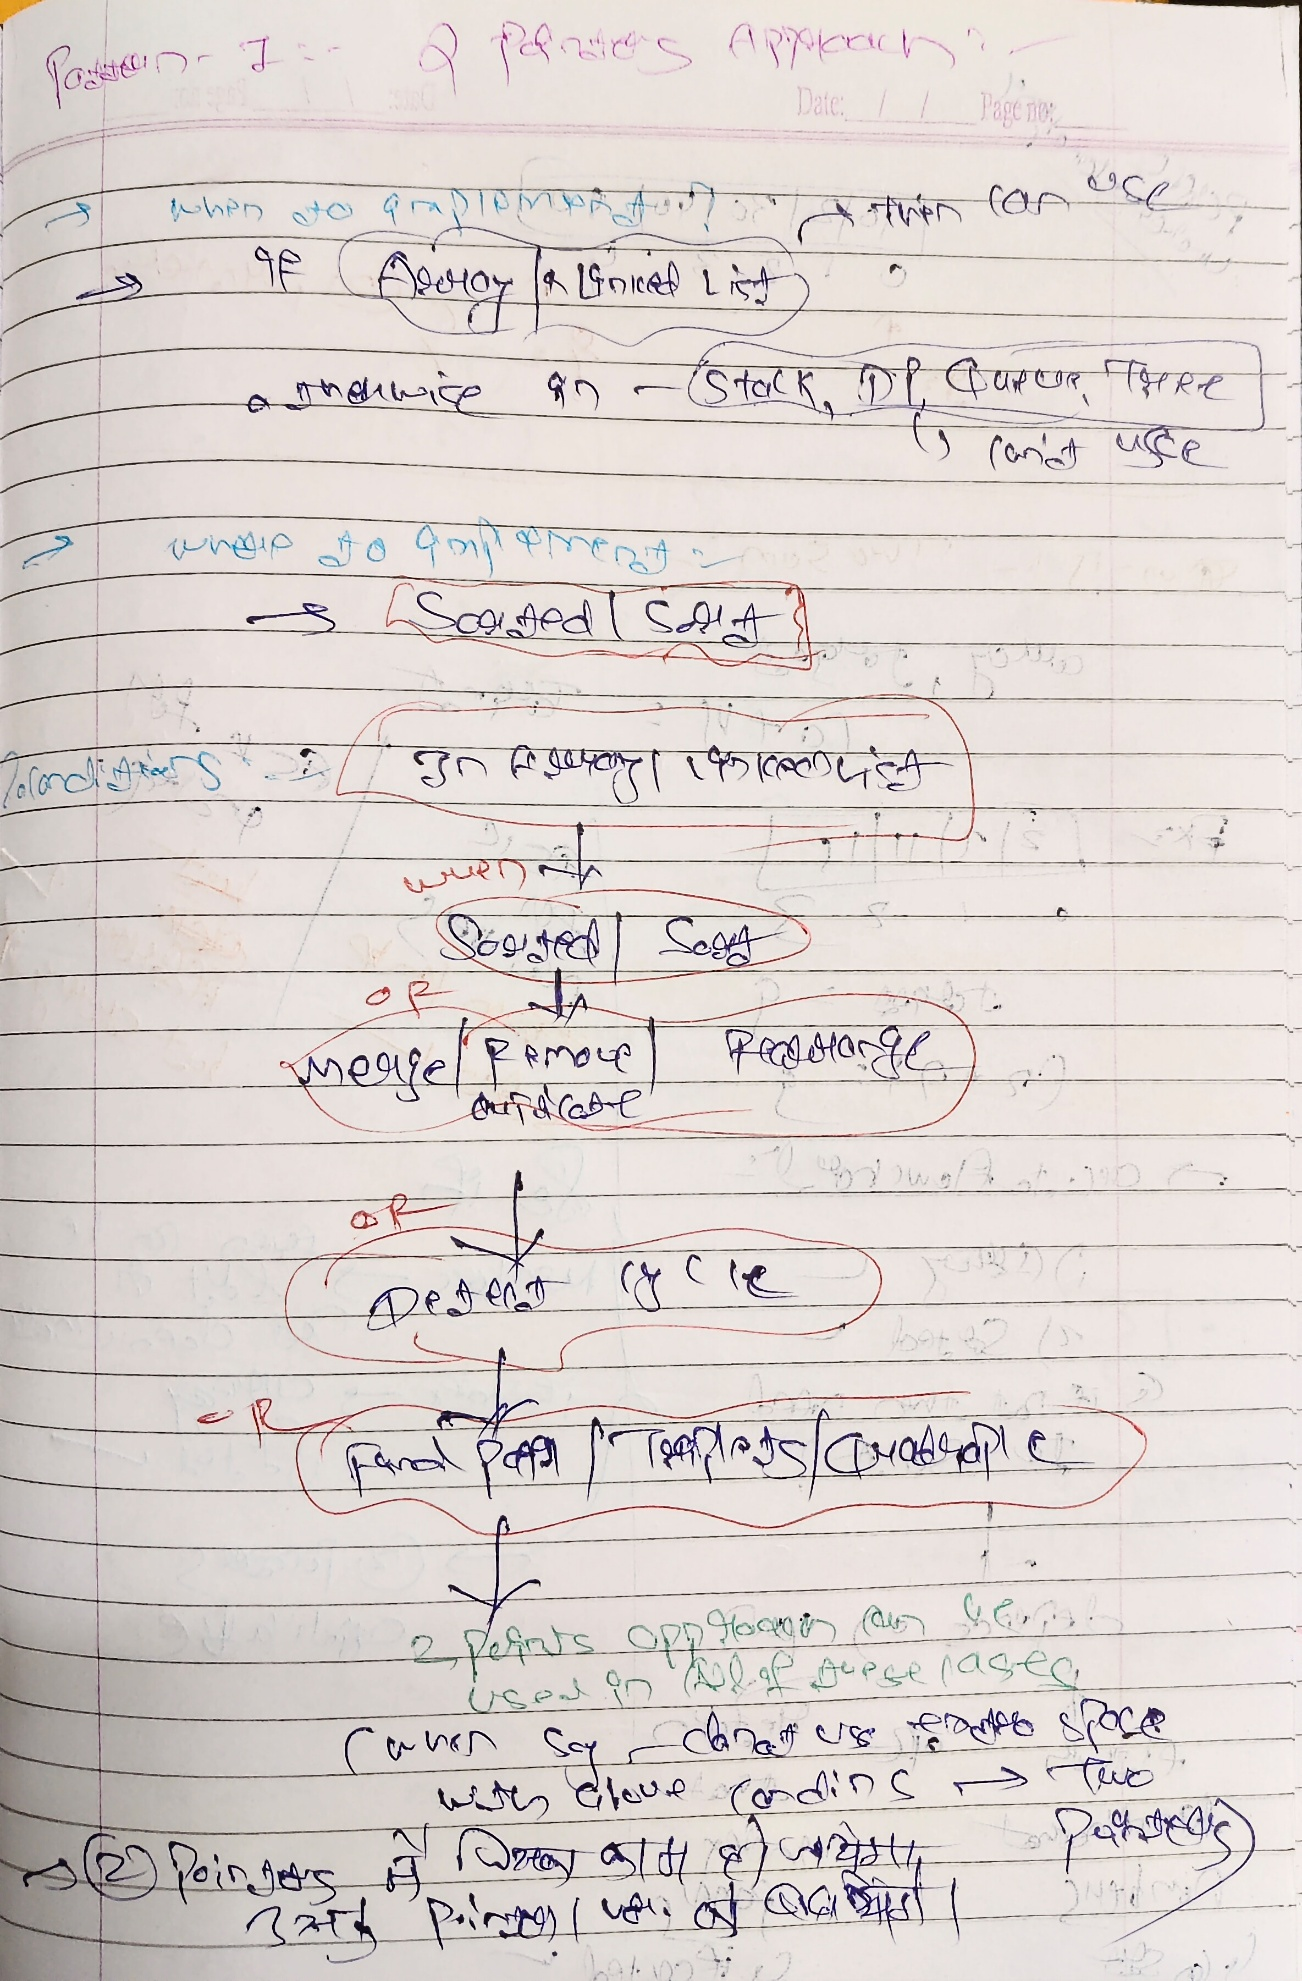 Pattern - I :- 2 Pointers Approach :-
Date: / / Page no:
→ when to implement? → then can use
→ if Array | Linked List
otherwise in - Stack, DP, Queue, Tree
↳ can't use
→ where to implement :-
→ Sorted | Sort
Conditions : In Array | Linked List
when
Sorted | Sort
OR
Merge | Remove | Rearrange
duplicate
OR
Detect cycle
OR
Find Pair | Triplets | Quadraple
2 points approach can be
used in All of these cases
(when say - do not use extra space
with above condins → Two
Pointers)
→ (2) Pointers में जिसका काम हो जायेगा,
उसका Pointer